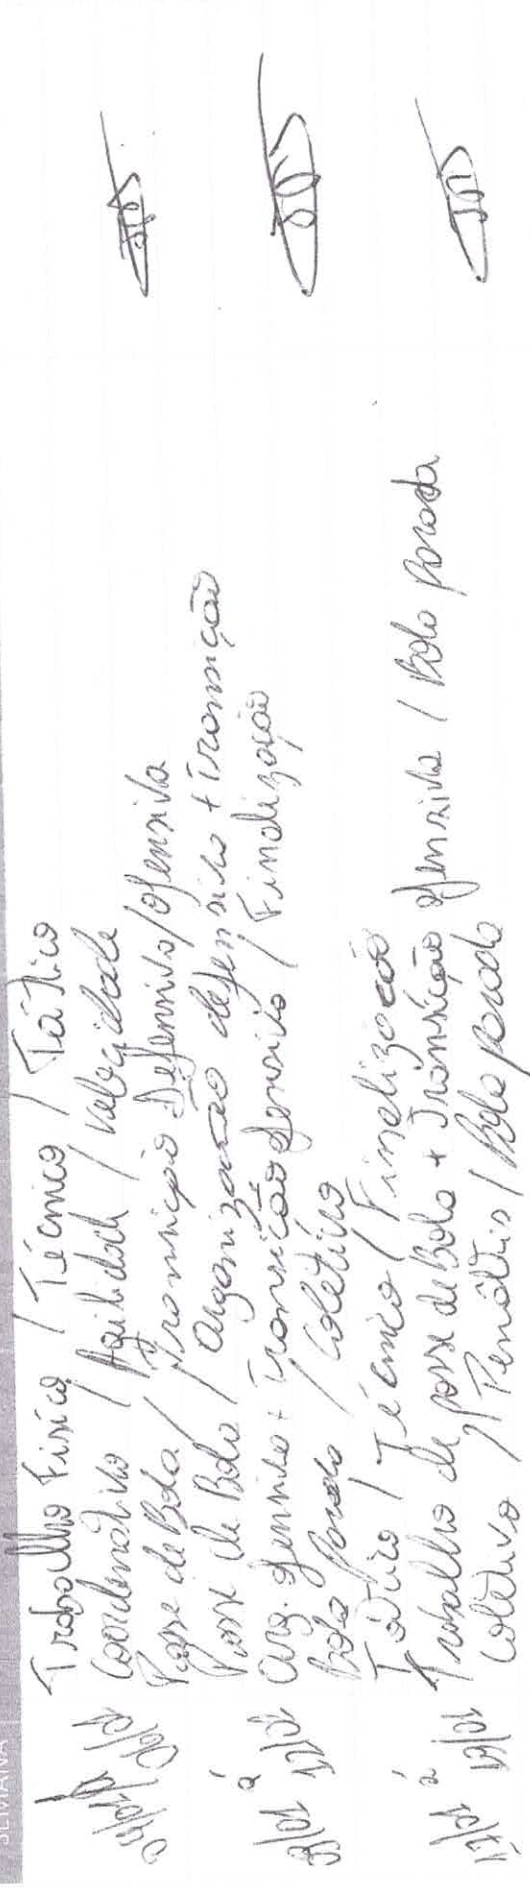 SEMANA
Trabalho Físico / Técnico / Tático
Coordenativo / Agilidade / Velocidade
Posse de Bola / Transição Defensiva/ofensiva
Posse de Bola / Organização defensiva + Transição
à
Org. ofensiva + Transição ofensiva / Finalização
Bola Parada / Coletivo
Tático / Técnico / Finalização
à
Trabalho de posse de Bola + Transição ofensiva / Bola parada
Coletivo / Penâltis / Bola parada